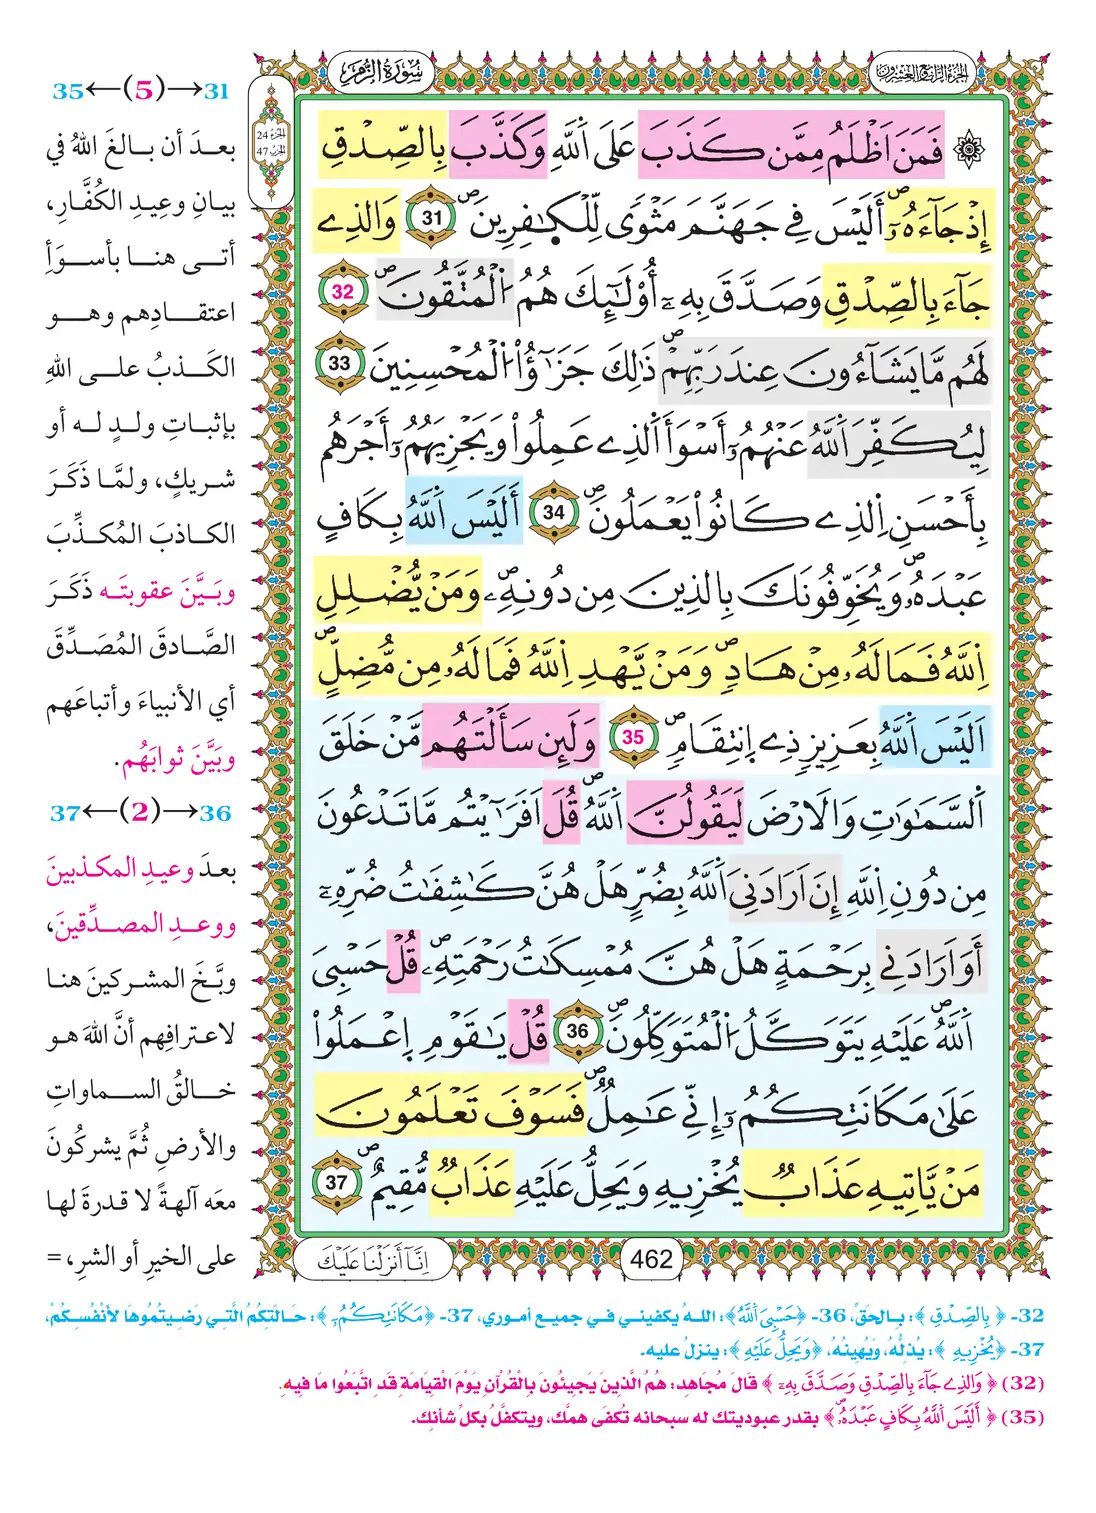 سُورَةُ الزُّمَرِ
الجُزْءُ الرَّابِعُ وَالعِشْرُونَ
الجزء 24
الحزب 47
31→(5)←35
بعدَ أن بالغَ اللهُ في
بيانِ وعِيدِ الكُفَّارِ،
أتى هنا بأسوَأِ
اعتقادِهم وهو
الكَذبُ على اللهِ
بإثباتِ ولدٍ له أو
شريكٍ، ولمَّا ذَكَرَ
الكاذبَ المُكذِّبَ
وبَيَّنَ عقوبتَه ذَكَرَ
الصَّادقَ المُصَدِّقَ
أي الأنبياءَ وأتباعَهم
وبَيَّنَ ثوابَهُم.
36→(2)←37
بعدَ وعيدِ المكذبينَ
ووعدِ المصدِّقينَ،
وبَّخَ المشركينَ هنا
لاعترافِهم أنَّ اللهَ هو
خالقُ السماواتِ
والأرضِ ثُمَّ يشركُونَ
معَه آلهةً لا قدرةَ لها
على الخيرِ أو الشرِ، =
۞ فَمَنَ اَظْلَمُ مِمَّن كَذَبَ عَلَى اَللَّهِ وَكَذَّبَ بِالصِّدْقِ
إِذْ جَآءَهُۥٓ أَلَيْسَ فِے جَهَنَّمَ مَثْوٗى لِّلْكٰفِرِينَ 31 وَالذِے
جَآءَ بِالصِّدْقِ وَصَدَّقَ بِهِۦٓ أُوْلَٰٓئِكَ هُمُ اُلْمُتَّقُونَ 32
لَهُم مَّا يَشَآءُونَ عِندَ رَبِّهِمْ ذَٰلِكَ جَزَٰٓؤُاْ اُلْمُحْسِنِينَ 33
لِيُكَفِّرَ اَللَّهُ عَنْهُمُۥٓ أَسْوَأَ اَلذِے عَمِلُواْ وَيَجْزِيَهُمُۥٓ أَجْرَهُم
بِأَحْسَنِ اِلذِے كَانُواْ يَعْمَلُونَ 34 أَلَيْسَ اَللَّهُ بِكَافٍ
عَبْدَهُۥ وَيُخَوِّفُونَكَ بِالذِينَ مِن دُونِهِۦ وَمَنْ يُّضْلِلِ
اِللَّهُ فَمَا لَهُۥ مِنْ هَادٖ وَمَنْ يَّهْدِ اِللَّهُ فَمَا لَهُۥ مِن مُّضِلٍّ
اَلَيْسَ اَللَّهُ بِعَزِيزٖ ذِے اِنتِقَامٖ 35 وَلَئِن سَأَلْتَهُم مَّنْ خَلَقَ
اَلسَّمَٰوَٰتِ وَالَارْضَ لَيَقُولُنَّ اَللَّهُ قُلَ اَفَرَٰٓيْتُم مَّا تَدْعُونَ
مِن دُونِ اِللَّهِ إِنَ اَرَادَنِيَ اَللَّهُ بِضُرٍّ هَلْ هُنَّ كَٰشِفَٰتُ ضُرِّهِۦٓ
أَوَ اَرَادَنِے بِرَحْمَةٍ هَلْ هُنَّ مُمْسِكَٰتُ رَحْمَتِهِۦ قُلْ حَسْبِيَ
اَللَّهُ عَلَيْهِ يَتَوَكَّلُ اُلْمُتَوَكِّلُونَ 36 قُلْ يَٰقَوْمِ اِعْمَلُواْ
عَلَىٰ مَكَانَتِكُمُۥٓ إِنِّے عَٰمِلٞ فَسَوْفَ تَعْلَمُونَ
مَنْ يَّاتِيهِ عَذَابٞ يُخْزِيهِ وَيَحِلُّ عَلَيْهِ عَذَابٞ مُّقِيمٌ 37
462
اِنَّآ أَنزَلْنَا عَلَيْكَ
32- ﴿بِالصِّدْقِ﴾: بالحَقِّ، 36- ﴿حَسْبِيَ اَللَّهُ﴾: اللهُ يكفيني في جميع أموري، 37- ﴿مَكَانَتِكُمُۥٓ﴾: حَالَتِكُمُ الَّتِي رَضِيتُمُوهَا لأَنْفُسِكُمْ،
37- ﴿يُخْزِيهِ﴾: يُذِلُّهُ، وَيُهِينُهُ، ﴿وَيَحِلُّ عَلَيْهِ﴾: ينزلُ عليه.
(32) ﴿وَالذِے جَآءَ بِالصِّدْقِ وَصَدَّقَ بِهِۦٓ﴾ قَالَ مُجَاهِد: هُمُ الَّذِينَ يَجِيئُونَ بِالْقُرْآنِ يَوْمَ الْقِيَامَةِ قَدِ اتَّبَعُوا مَا فِيهِ.
(35) ﴿أَلَيْسَ اَللَّهُ بِكَافٍ عَبْدَهُۥ﴾ بقدر عبوديتك له سبحانه تُكفَى همَّك، ويتكفَّلُ بكلِّ شأنِك.